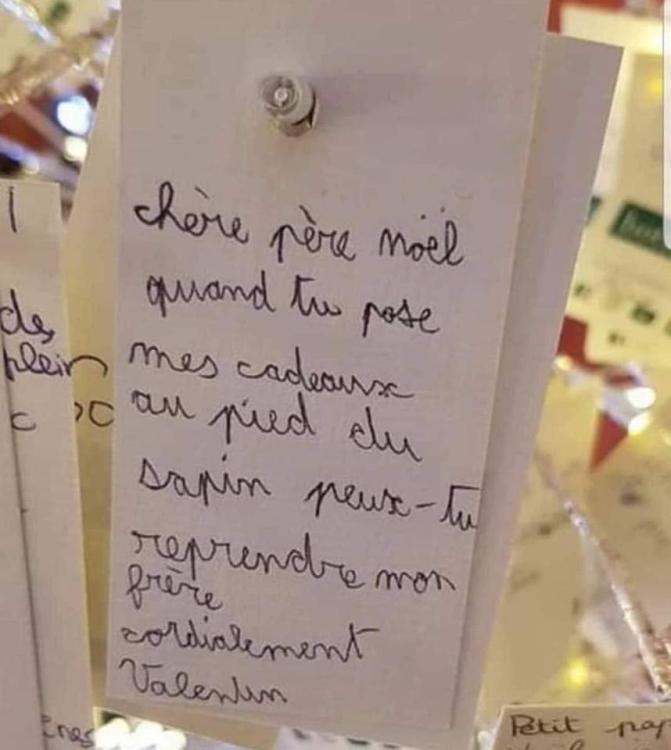 chère père noël
quand tu pose
mes cadeaux
au pied du
sapin peux-tu
reprendre mon
frère
cordialement
Valentin
de
plein
Petit pap